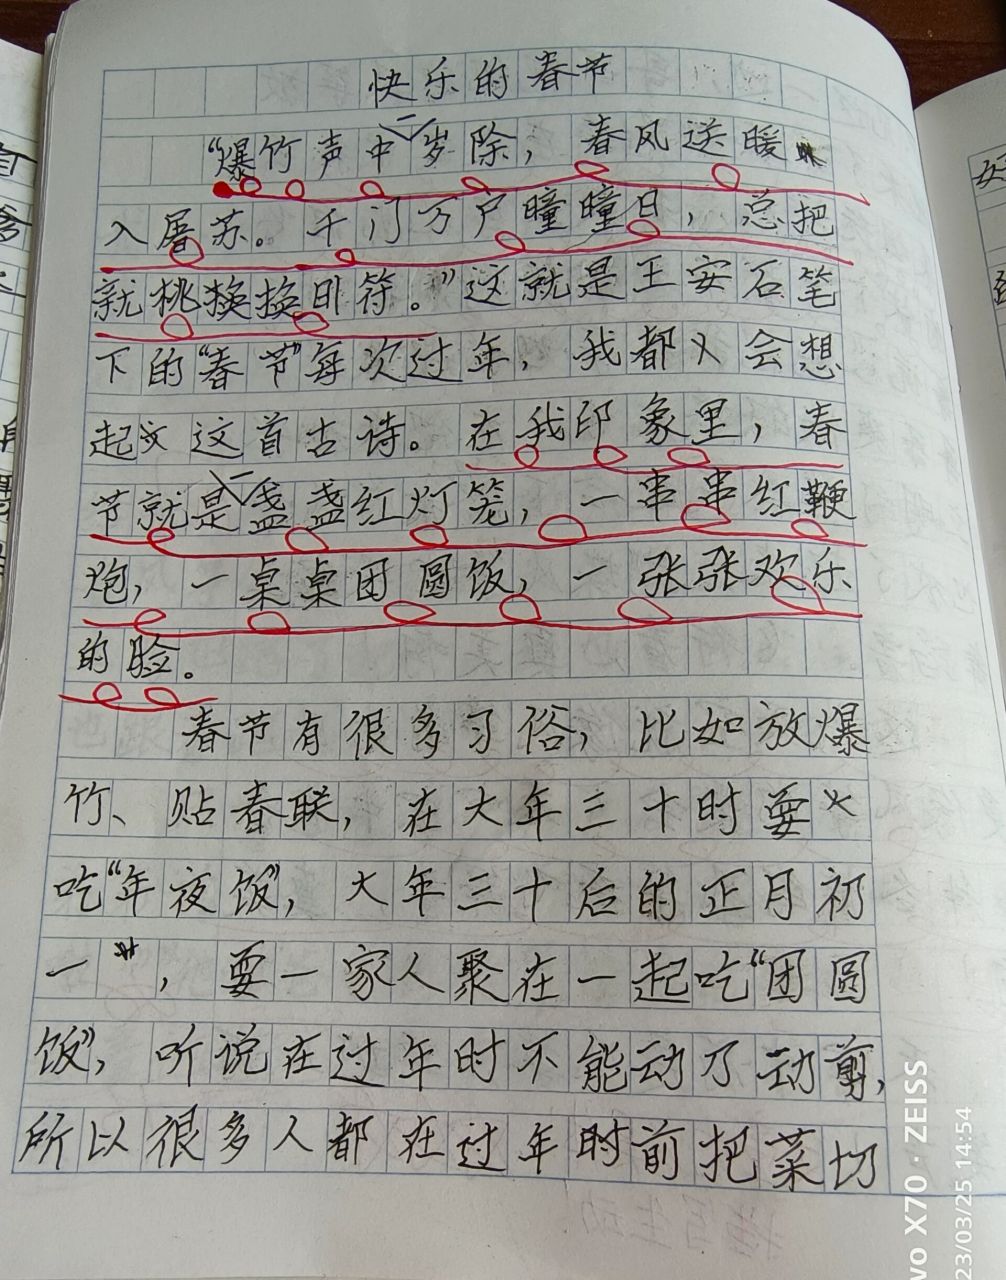 快乐的春节
“爆竹声中一岁除，春风送暖
入屠苏。千门万户曈曈日，总把
就桃换换旧符。”这就是王安石笔
下的“春节”每次过年，我都会想
起这首古诗。在我印象里，春
节就是一盏盏红灯笼，一串串红鞭
炮，一桌桌团圆饭，一张张欢乐
的脸。
春节有很多习俗，比如放爆
竹、贴春联，在大年三十时要
吃“年夜饭”，大年三十后的正月初
一，要一家人聚在一起吃“团圆
饭”，听说在过年时不能动刀动剪，
所以很多人都在过年时前把菜切
VO X70 · ZEISS
23/03/25 14:54